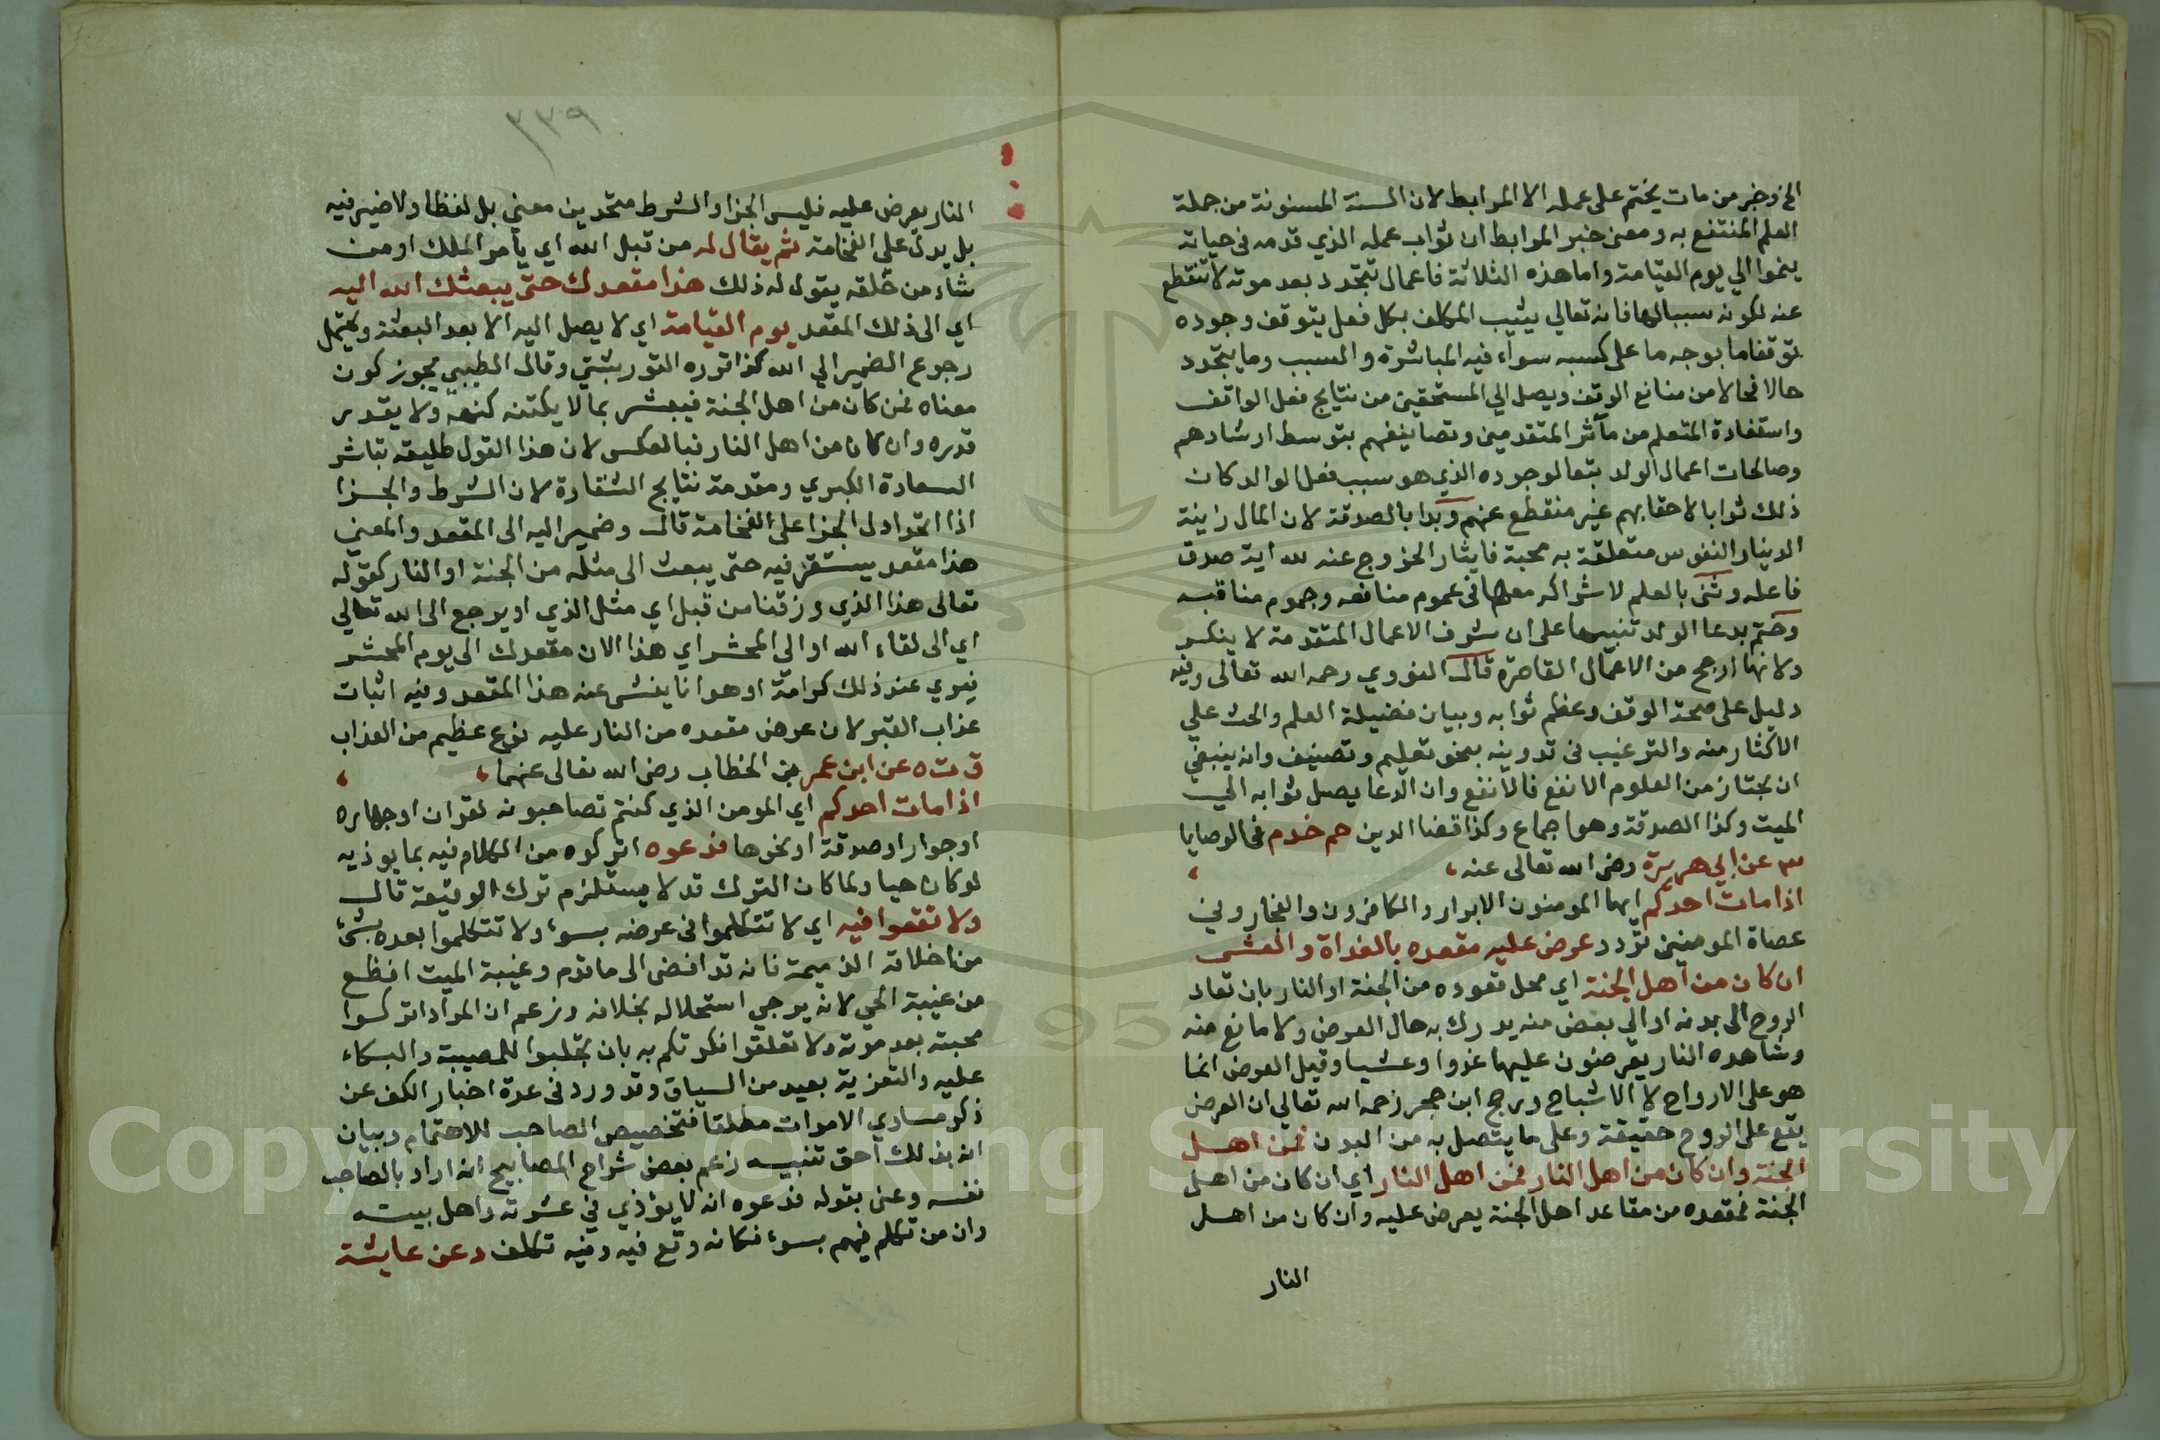 الخ وخبر من مات يختم على عمله الا المرابط لان السنة المسنونة من جملة
العلم المنتفع به ومعنى خبر المرابط ان ثواب عمله الذي قدمه في حياته
ينموا الي يوم القيامة واما هذه الثلاثة فاعمال تتجدد بعد موته لا تنقطع
عنه لكونه سببا لها فانه تعالي يثيب المكلف بكل فعل يتوقف وجوده
توقفا ما بوجه ما على كسبه سواء فيه المباشرة والمسبب وما يتجدد
حالا فحالا من منافع الوقف ويصل الي المستحقين من نتايج فعل الواقف
واستفادة المتعلم من مآثر المتقدمين وتصانيفهم بتوسط ارشادهم
وصالحات اعمال الولد تبعا لوجوده الذي هو سبب فعل الوالد كان
ذلك ثوابا لاحقا بهم غير منقطع عنهم وبدا بالصدقة لان المال زينة
الدينار النفوس متعلقة به محبة فايثار الخروج عنه لله اية صدق
فاعله وثنى بالعلم لاشتراكه معها في عموم منافعه وجموم مناقبه
وختم بدعا الولد تنبيها على ان شرف الاعمال المتقدمة لا ينكر
ولانها ارجح من الاعمال القاصرة قال النووي رحمه الله تعالى وفيه
دليل على صحة الوقف وعظم ثوابه وبيان فضيلة العلم والحث علي
الاكثار منه والترغيب في تدوينه بنحو تعليم وتصنيف وانه ينبغي
ان يختار من العلوم الانفع فالانفع وان الدعا يصل ثوابه الي
الميت وكذا الصدقة وهو اجماع وكذا قضا الدين حم خدم في الوصايا
٣ عن ابي هريرة رضي الله تعالى عنه
اذا مات احدكم ايها المومنون الابرار والكافرون والفجار وفي
عصاة المومنين تردد عرض عليه مقعده بالغداة والعشي
ان كان من اهل الجنة اي محل قعوده من الجنة او النار بان تعاد
الروح الى بدنه او الي بعض منه يدرك به حال العرض ولا مانع منه
وشاهده النار يعرضون عليها غدوا وعشيا وقيل العرض انما
هو على الارواح لا الاشباح ورجح ابن حجر رحمه الله تعالي ان العرض
يقع على الروح حقيقة وعلى ما يتصل به من البدن فمن اهل
الجنة وان كان من اهل النار فمن اهل النار اي ان كان من اهل
الجنة فمقعده من مقاعد اهل الجنة يعرض عليه وان كان من اهل
النار
٣٣٩
النار يعرض عليه فليس الجزا والشرط متحدين معني بل لفظا ولا ضير فيه
بل يدل علي الفخامة ثم يقال له من قبل الله اي يامر الملك او من
شاء من خلقه يقول له ذلك هذا مقعدك حتى يبعثك الله اليه
اي الى ذلك المقعد يوم القيامة اي لا يصل اليه الا بعد البعثة ويحتمل
رجوع الضمير الي الله كذا قرره التوربشتي وقال الطيبي يجوز كون
معناه فمن كان من اهل الجنة فيبشر بما لا يكتنه كنهه ولا يقدر
قدره وان كان من اهل النار فبالعكس لان هذا القول طليعة تباشر
السعادة الكبري ومقدمة نتايج الشقاوة لان الشرط والجزا
اذا اتحدا دل الجزا على الفخامة قال وضمير اليه الى المقعد والمعني
هذا مقعد يستقر فيه حتى يبعث الى مثله من الجنة او النار كقوله
تعالى هذا الذي رزقنا من قبل اي مثل الذي او يرجع الى الله تعالي
اي الى لقاء الله او الى المحشر اي هذا الان مقعدك الى يوم المحشر
فيري عند ذلك كرامة او هوانا ينسى عنه هذا المقعد وفيه اثبات
عذاب القبر لان عرض مقعده من النار عليه نوع عظيم من العذاب
ق ت ه عن ابن عمر بن الخطاب رضي الله تعالى عنهما
اذا مات احدكم اي المومن الذي كنتم تصاحبونه لقران او جهاره
او جوار او صدقة او نحوها فدعوه اتركوه من الكلام فيه بما يوذيه
لو كان حيا ولما كان الترك قد لا يستلزم ترك الوقيعة قال
ولا تقعوا فيه اي لا تتكلموا في عرضه بسوء ولا تتكلموا بعده بشيء
من اخلاقه الذميمة فانه قد افضى الى ما قدم وغيبة الميت افظع
من غيبة الحي لانه يرجي استحلاله بخلافه وزعم ان المراد اتركوا
محبته بعد موته ولا تعلقوا فكرتكم به بان تجلبوا للمصيبة والبكاء
عليه والتعزية بعيد من السياق وقد ورد في عدة اخبار الكف عن
ذكر مساوي الاموات مطلقا فتخصيص الصاحب للاهتمام وبيان
انه بذلك احق تنبيه زعم بعض شراح المصابيح انه اراد بالصاحب
نفسه وعنى بقوله فدعوه انه لا يؤذي في عترته واهل بيته
وان من تكلم فيهم بسوء فكانه وقع فيه وفيه تكلف د عن عايشة
Copyright © King Saud University
1957